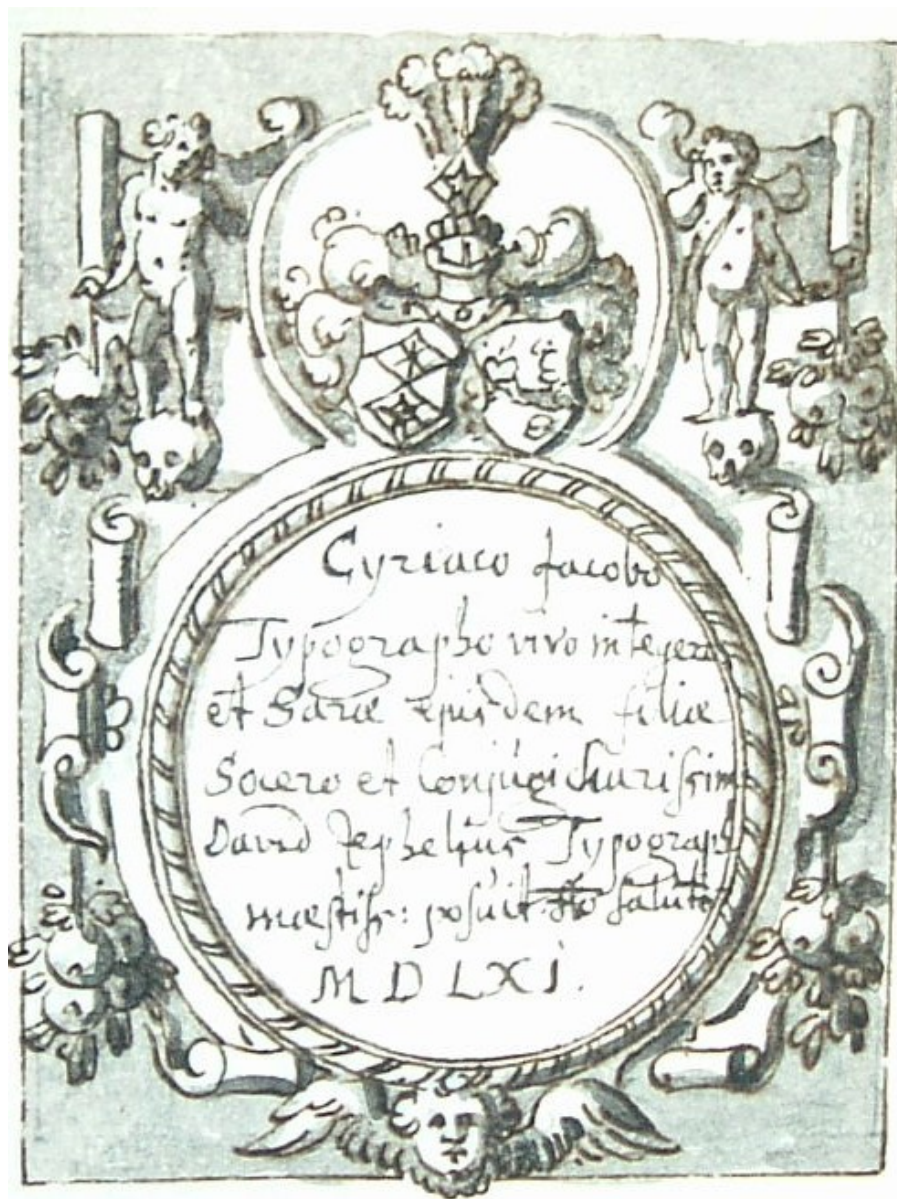 Cyriaco Jacobo
Typographo viro integerro
et Saræ ejusdem filiæ
Socero et Conjugi charissim
David Zephelius Typograph
mæstiss: posuit salut
MDLXI.